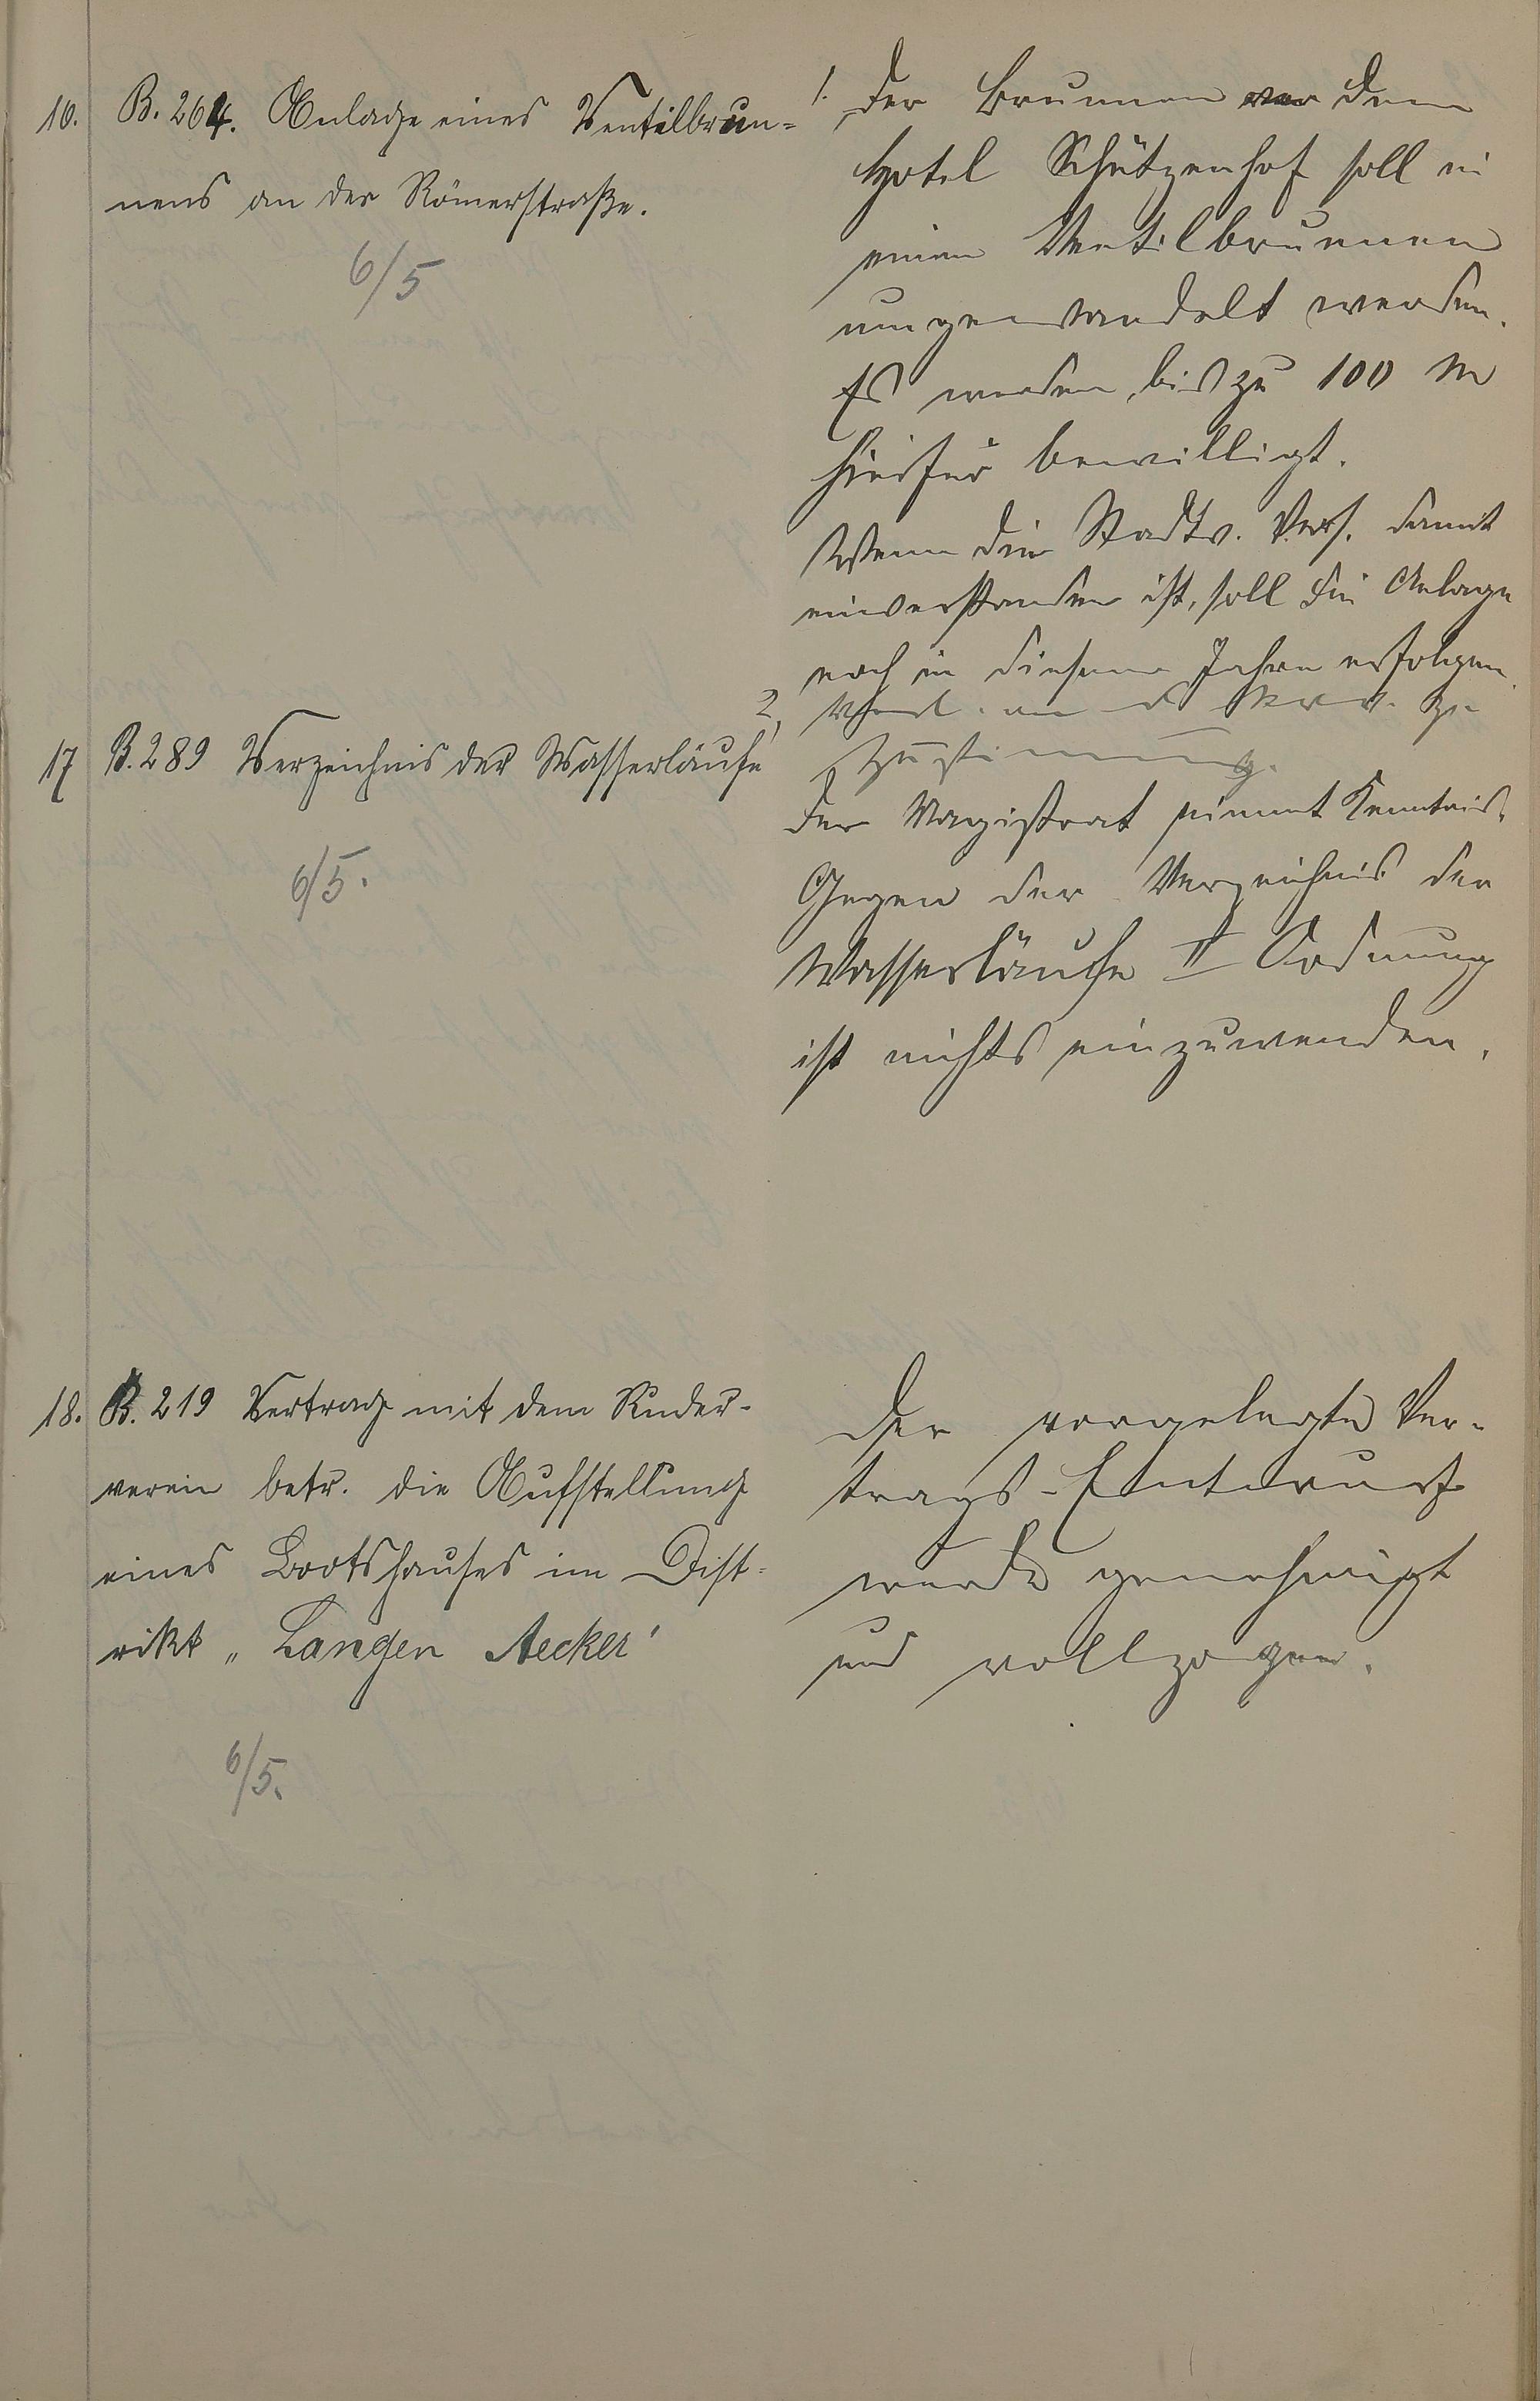 16.
B. 264. Anlage eines Ventilbrun=
nens an der Römerstraße.
6/5
1. Der Brunnen vor dem
Hotel Schützenhof soll in
einen Ventilbrunnen
umgewandelt werden.
Es werden bis zu 100 M
hierfür bewilligt.
Wenn die Stadtv. Vers. damit
einverstanden ist, soll die Anlage
noch in diesem Jahre erfolgen.
2,
Zustimmung.
17
B. 289 Verzeichnis der Wasserläufe
6/5.
Der Magistrat nimmt Kenntnis.
Gegen der Verzeichnis der
Wasserläufe II Ordnung
ist nichts einzuwenden.
18.
B. 219 Vertrag mit dem Ruder-
verein betr. die Aufstellung
eines Bootshauses im Dist=
rikt „Langen Aecker"
6/5.
Der vorgelegte Ver-
trags-Entwurf
wurde genehmigt
und vollzogen.